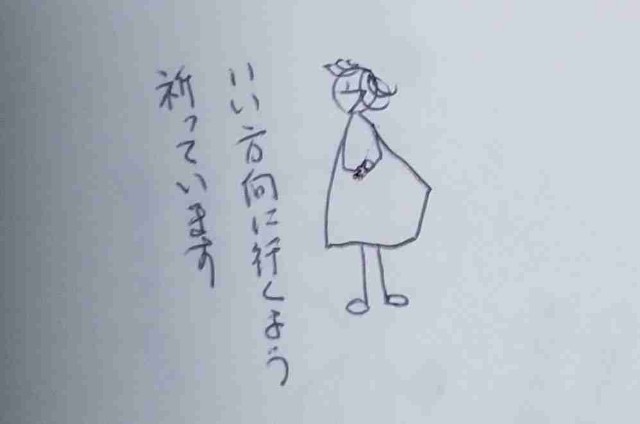 いい方向に行くよう
祈っています